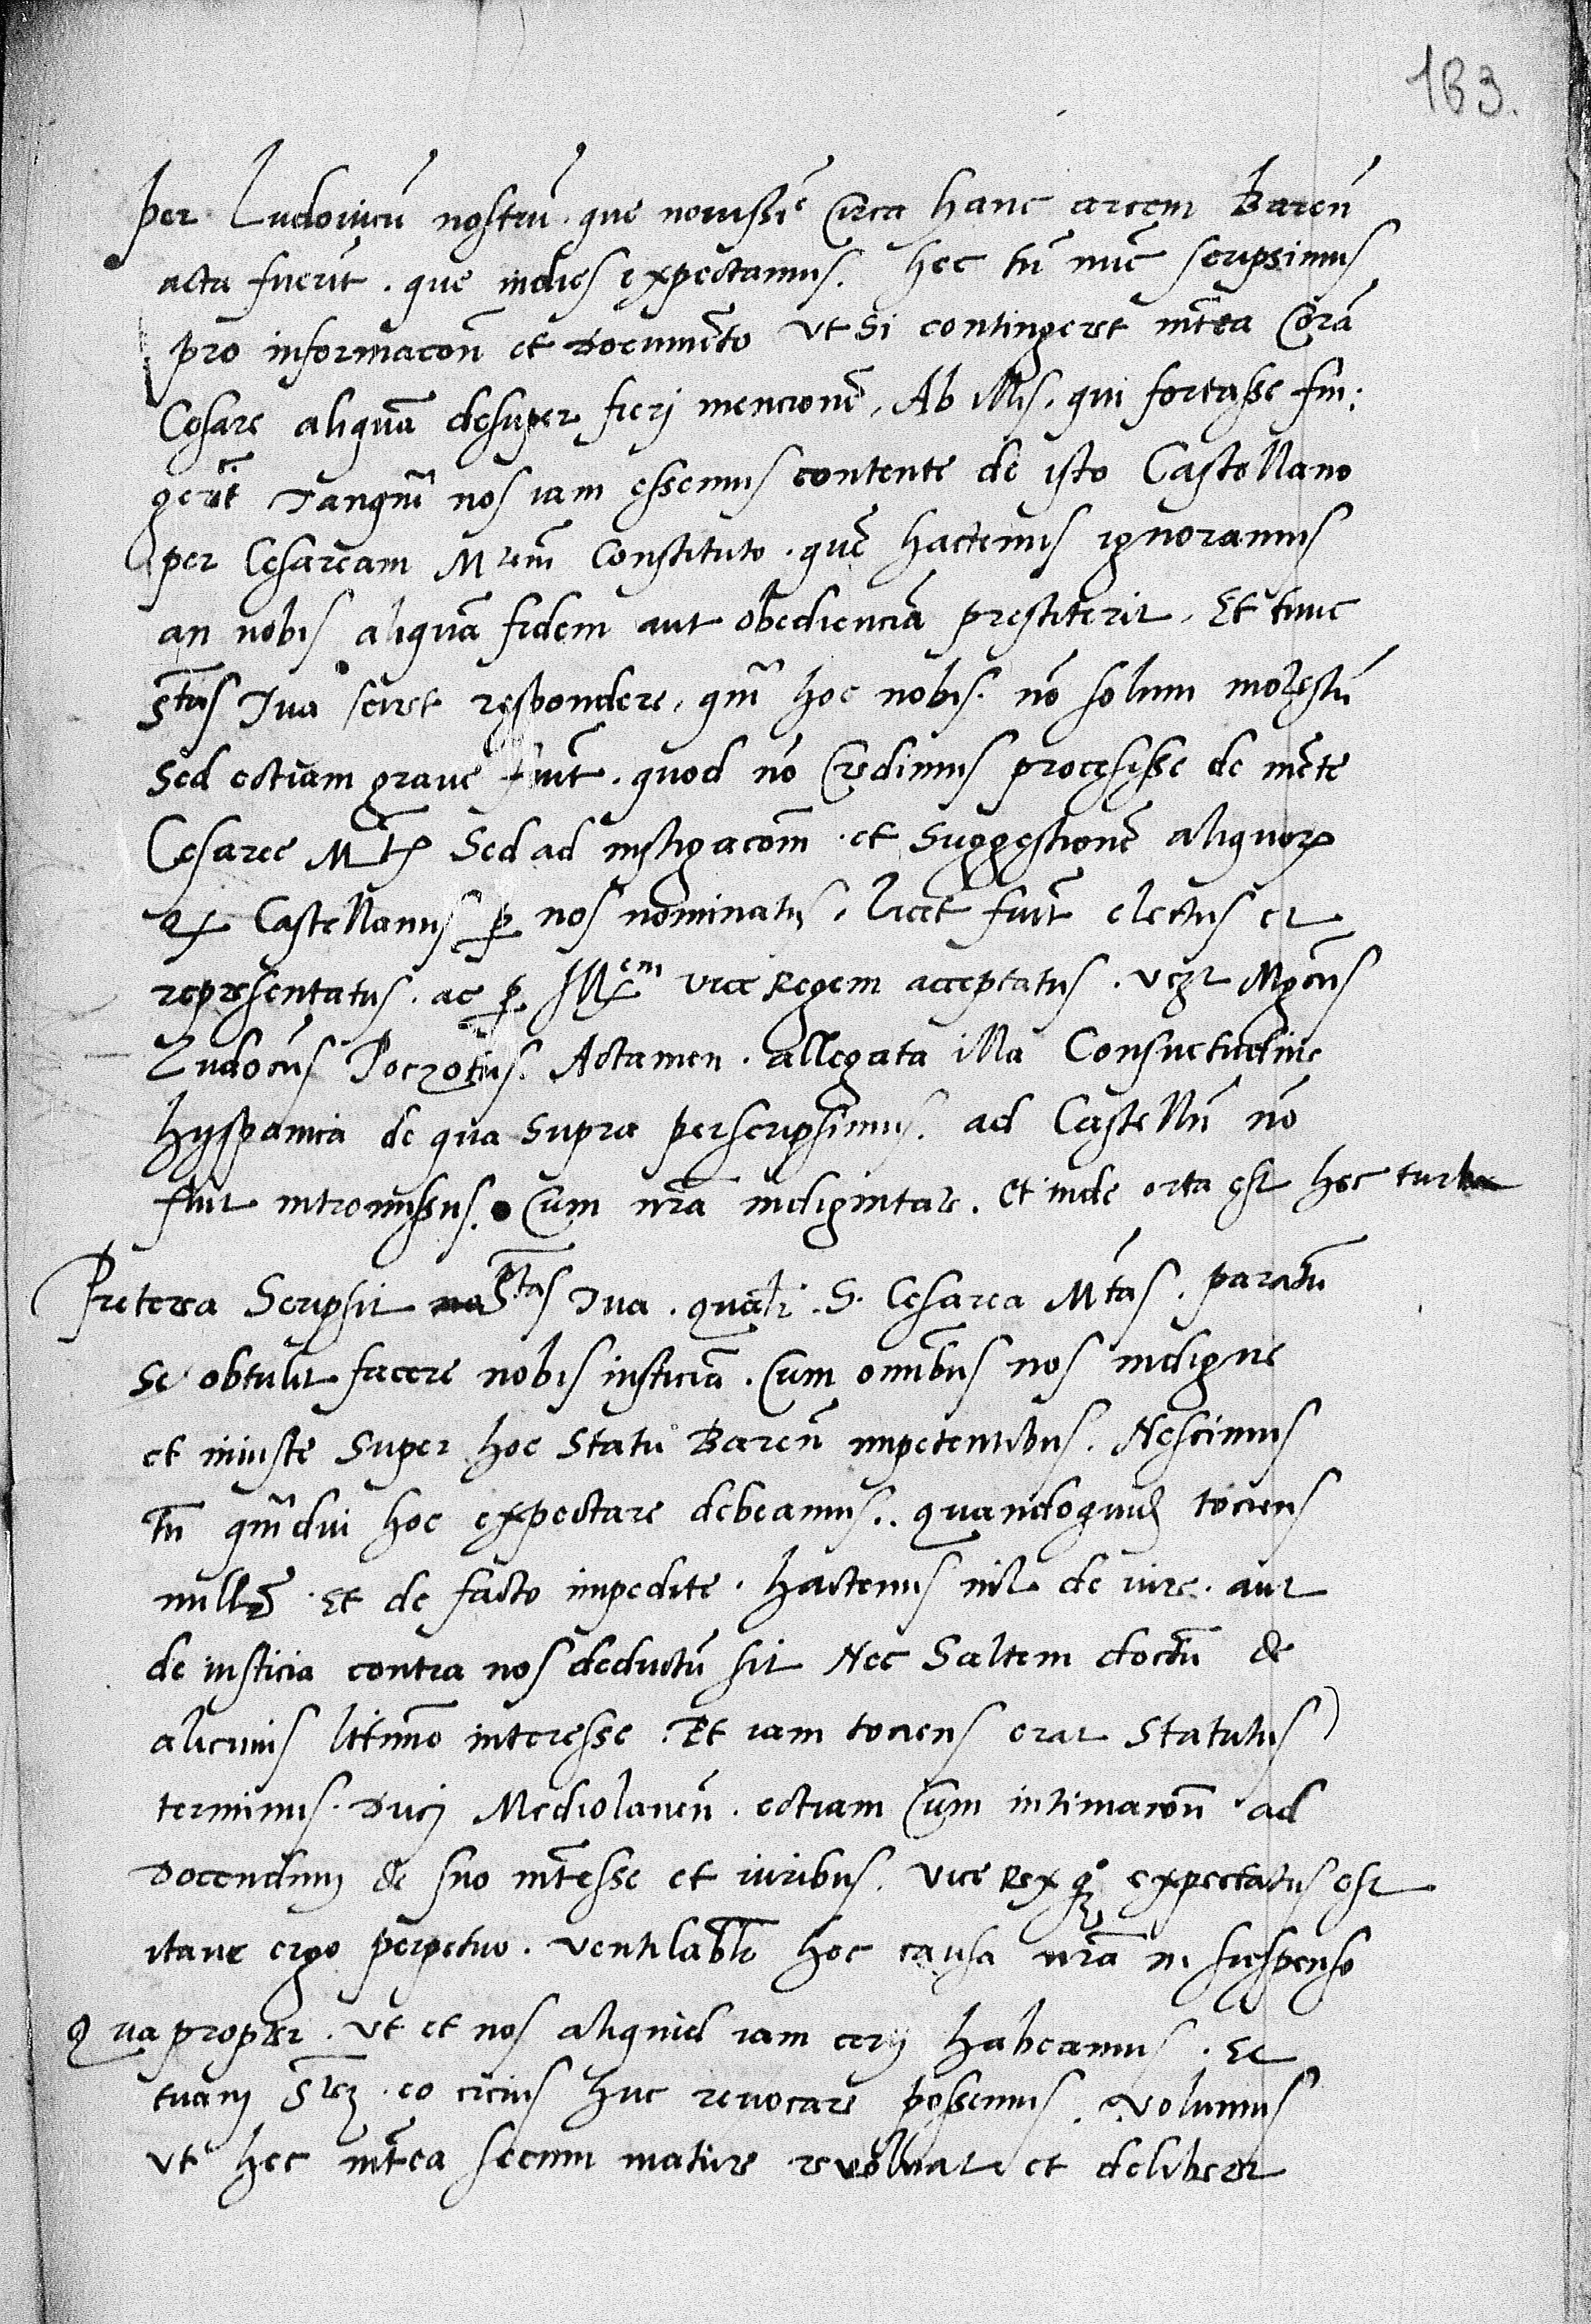 183.
per Ludouicū nostrū. que nouissīe Circa hanc arcem Bareñ
acta fuerūt. que indies expectamus. hec tñ nūc scripsimus
pro informacoñ et documēto Vt si contingeret int̄ea Corā
Cesare aliquā desuper fierj mencionē, Ab illis. qui fortasse fin:
gerēt Tanqm̄ nos iam essemus contente de isto Castellano
per Cesaream Mtem Constituto. quē hactenus ignoramus
an nobis aliquā fidem aut obedienciā prestiterit. Et tunc
Stas Tua sciret respondere, qm̄ hoc nobis. nō solum molestū
Sed ectiam graue fuit. quod nō Credimus processisse de mēte
Cesaree Mtis Sed ad instigacōm. et Suggestionē aliquorum
qx Castellanus p nos nominatus, licet fuit electus et
represẽntatus. ac p Illem vice Regem acceptatus. vcz Mgcus
Ludocus Poczotius. Actamen. allegata illa Consuetudine
hyspanica de qua supra perscripsimus. ad Castellū nō
fuit intromissus. Cum nrā indignitate. et inde orta est hec turba
Preterea Scripsit Stas Tua. qualr. S. Cesarea Mtas. paratū
Se obtulit facere nobis iusticiā. Cum omībus nos indigne
et iniuste Super hoc Statu Bareñ impetentibus. Nescimus
tñ qm̄diu hoc expectare debeamus.. quandoquidē tociens
nullr. Et de facto impedite. hactenus nil de iure. aut
de iusticia contra nos deductū sit Nec Saltem doctū de
alicuius littimo interesse. Et iam tociens erat Statutus
terminus. Ducj Mediolaneñ. ectiam Cum intimacoñ ad
docendum de suo int̄esse et iuribus. Vice Rex qz expectatus est
itane ergo perpetuo. Ventilabtr hec causa nrā in suspenso
Quapropter. Vt et nos aliquid iam certj habeamus. Et
tuam Stez. eo cicius huc reuocare possemus. Volumus
Vt hec int̄ea secum mature reuoluat et deliberet